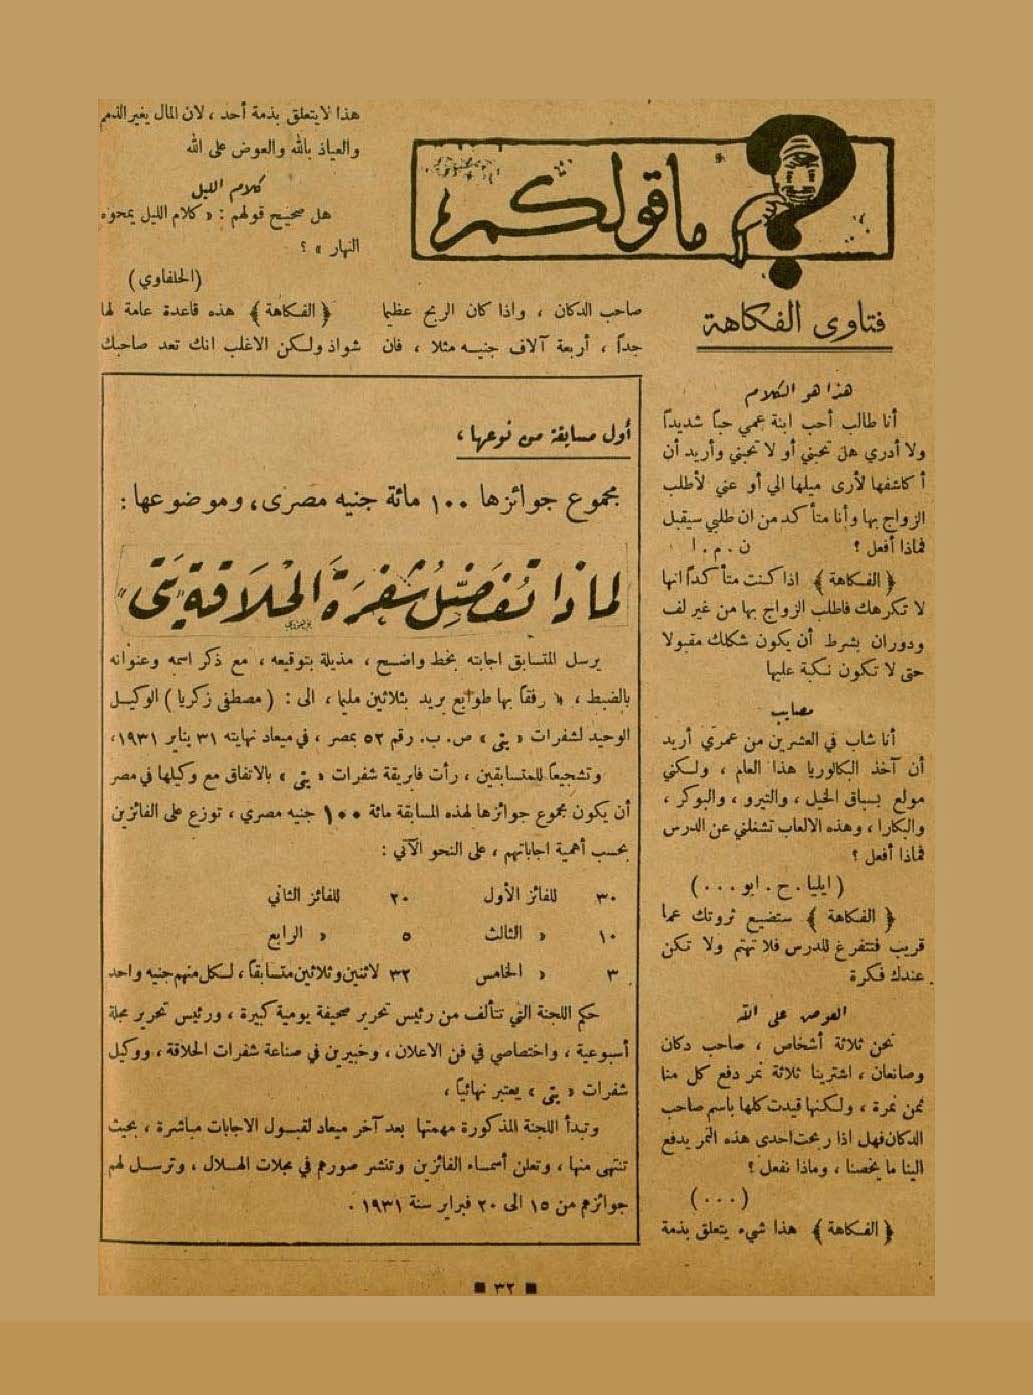 ما قولكم
فتاوى الفكاهة
هذا هو الكلام
أنا طالب أحب ابنة عمي حباً شديداً
ولا أدري هل تحبني أو لا تحبني وأريد أن
أكاشفها لأرى ميلها الي أو عني لأطلب
الزواج بها وأنا متأكد من ان طلبي سيقبل
فماذا أفعل ؟ ن . م . ا
﴿ الفكاهة ﴾ اذا كنت متأكداً انها
لا تكرهك فاطلب الزواج بها من غير لف
ودوران بشرط أن يكون شكلك مقبولا
حتى لا تكون نكبة عليها
مصايب
أنا شاب في العشرين من عمري أريد
أن آخذ البكالوريا هذا العام ، ولكني
مولع بسباق الخيل ، والنيرو ، والبوكر ،
والبكارا ، وهذه الالعاب تشغلني عن الدرس
فماذا أفعل ؟
( ايليا . ح . ابو ... )
﴿ الفكاهة ﴾ ستضيع ثروتك عما
قريب فتتفرغ للدرس فلا تهتم ولا تكن
عندك فكرة
العوض على الله
نحن ثلاثة أشخاص ، صاحب دكان
وصانعان ، اشترينا ثلاثة نمر دفع كل منا
ثمن نمرة ، ولكنها قيدت كلها باسم صاحب
الدكان فهل اذا ربحت احدى هذه النمر يدفع
الينا ما يخصنا ، وماذا نفعل ؟
( ... )
﴿ الفكاهة ﴾ هذا شيء يتعلق بذمة
صاحب الدكان ، واذا كان الربح عظيما
جداً ، أربعة آلاف جنيه مثلا ، فان
هذا لا يتعلق بذمة أحد ، لان المال يغير الذمم
والعياذ بالله والعوض على الله
كلام الليل
هل صحيح قولهم : « كلام الليل يمحوه
النهار » ؟
( الحلفاوي )
﴿ الفكاهة ﴾ هذه قاعدة عامة لها
شواذ ولكن الاغلب انك تعد صاحبك
أول مسابقة من نوعها ،
مجموع جوائزها ١٠٠ مائة جنيه مصرى ، وموضوعها :
لماذا تُفَضِّلُ شَفْرَةَ الحْلَاقةِ "يَتى"
يرسل المتسابق اجابته بخط واضح ، مذيلة بتوقيعه ، مع ذكر اسمه وعنوانه
بالضبط ، رفقاً بها طوابع بريد بثلاثين مليما ، الى : ( مصطفى زكريا ) الوكيل
الوحيد لشفرات « يتى » ص . ب . رقم ٥٢ بمصر ، في ميعاد نهايته ٣١ يناير ١٩٣١ ،
وتشجيعاً للمتسابقين ، رأت فابريقة شفرات « يتى » بالاتفاق مع وكيلها في مصر
أن يكون مجموع جوائزها لهذه المسابقة مائة ١٠٠ جنيه مصري ، توزع على الفائزين
بحسب أهمية اجاباتهم ، على النحو الآتي :
٣٠ للفائز الأول ٢٠ للفائز الثاني
١٠ « الثالث ٥ « الرابع
٣ « الخامس ٣٢ لاثنين وثلاثين متسابقاً ، لكل منهم جنيه واحد
حكم اللجنة التي تتألف من رئيس تحرير صحيفة يومية كبيرة ، ورئيس تحرير مجلة
أسبوعية ، واختصاصي في فن الاعلان ، وخبيرين في صناعة شفرات الحلاقة ، ووكيل
شفرات « يتى » يعتبر نهائياً ،
وتبدأ اللجنة المذكورة مهمتها بعد آخر ميعاد لقبول الاجابات مباشرة ، بحيث
تنتهى منها ، وتعلن أسماء الفائزين وتنشر صورهم في مجلات الهلال ، وترسل لهم
جوائزهم من ١٥ الى ٢٠ فبراير سنة ١٩٣١ .
٣٢